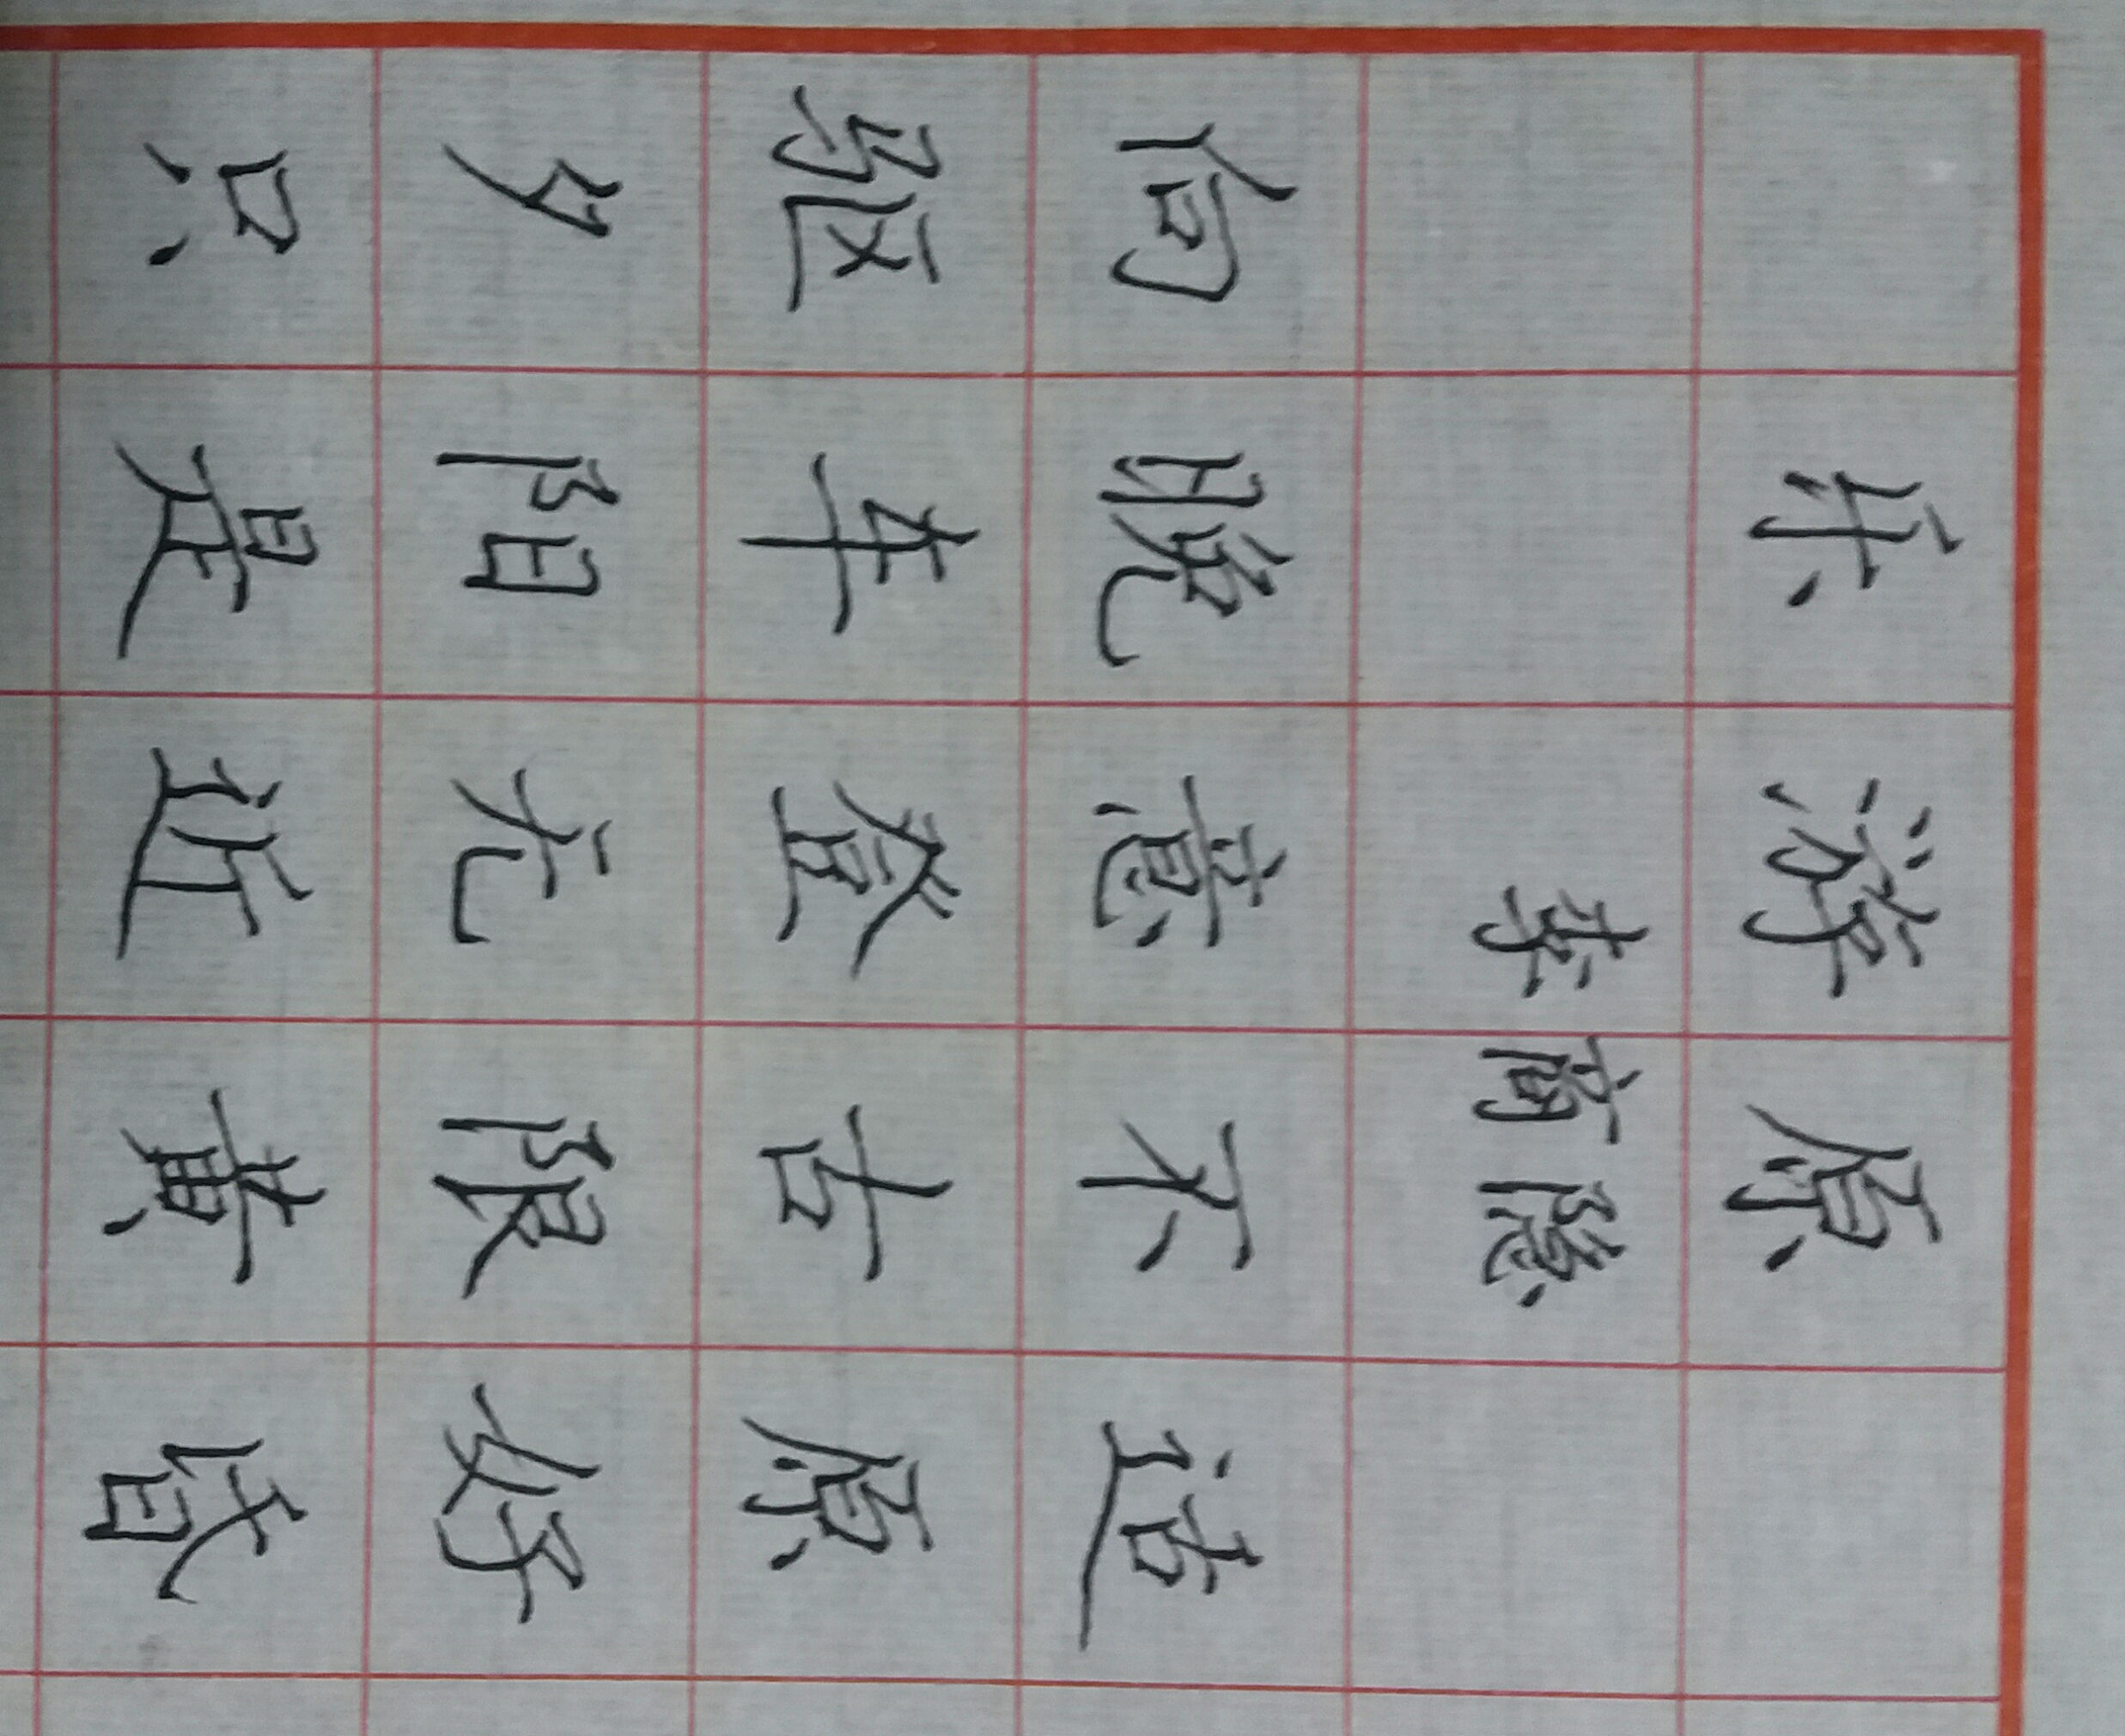 乐游原
李商隐
向晚意不适
驱车登古原
夕阳无限好
只是近黄昏